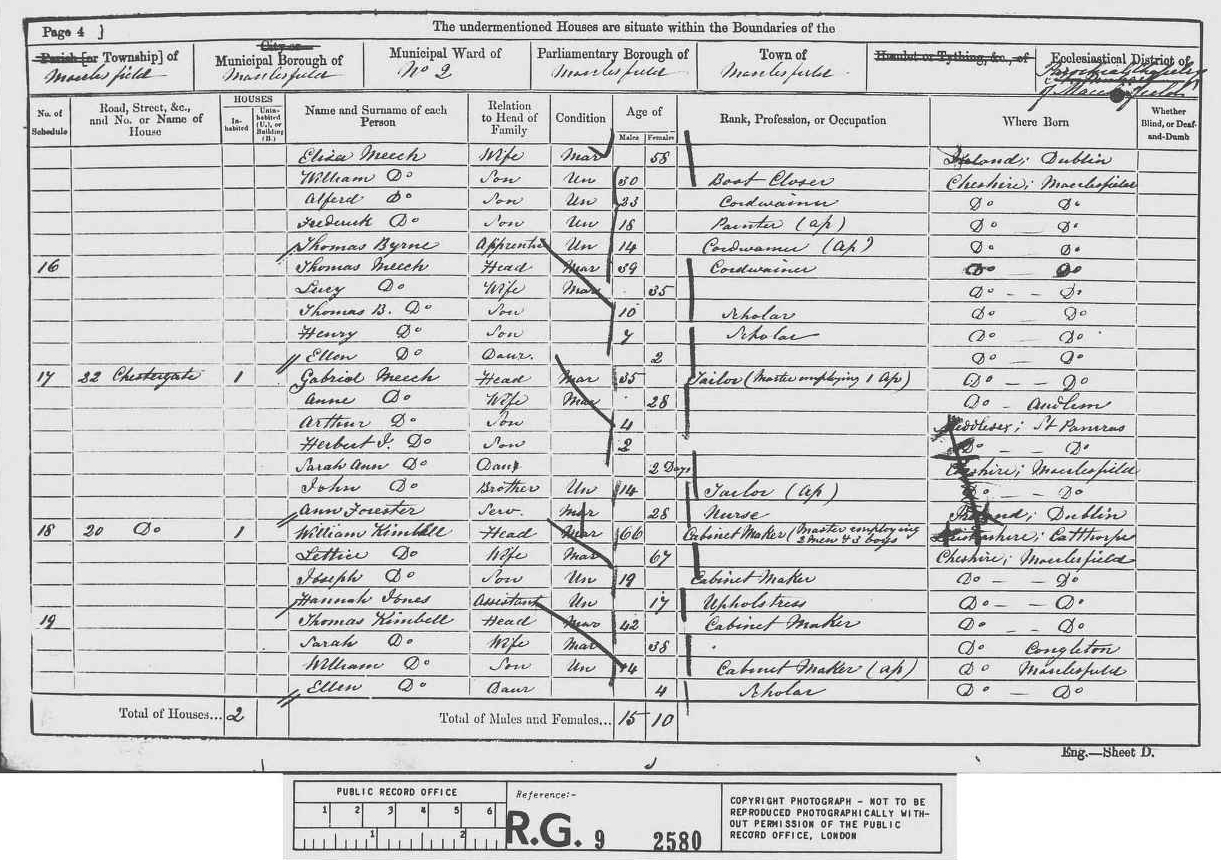 Page 4 } The undermentioned Houses are situate within the Boundaries of the
Parish [or Township] of City or Municipal Borough of Municipal Ward of Parliamentary Borough of Town of Hamlet or Tything, &c., of Ecclesiastical District of
Macclesfield Macclesfield No 2 Macclesfield Macclesfield Parochial Chapelry of Macclesfield
No. of Schedule Road, Street, &c., and No. or Name of House HOUSES Inhabited Uninhabited (U.), or Building (B.) Name and Surname of each Person Relation to Head of Family Condition Age of Males Females Rank, Profession, or Occupation Where Born Whether Blind, or Deaf-and-Dumb
Eliza Meech Wife Mar 58 Ireland; Dublin
William Do Son Un 30 Boot Closer Cheshire; Macclesfield
Alferd Do Son Un 23 Cordwainer Do Do
Frederick Do Son Un 18 Painter (Ap) Do Do
Thomas Byrne Apprentice Un 14 Cordwainer (Ap) Do Do
16 Thomas Meech Head Mar 39 Cordwainer Do Do
Lucy Do Wife Mar 35 Do Do
Thomas B. Do Son 10 Scholar Do Do
Henry Do Son 7 Scholar Do Do
Ellen Do Daur. 2 Do Do
17 22 Chestergate 1 Gabriel Meech Head Mar 35 Tailor (Master employing 1 Ap) Do Do
Anne Do Wife Mar 28 Do Audlem
Arthur Do Son 4 Middlesex; St Pancras
Herbert J. Do Son 2 Do Do
Sarah Ann Do Daur 2 Days Cheshire; Macclesfield
John Do Brother Un 14 Tailor (Ap) Do Do
Ann Forester Serv. Mar 28 Nurse Ireland; Dublin
18 20 Do 1 William Kimbell Head Mar 66 Cabinet Maker (Master employing 2 men & 3 boys Leicestershire; Catthorpe
Lettice Do Wife Mar 67 Cheshire; Macclesfield
Joseph Do Son Un 19 Cabinet Maker Do Do
Hannah Jones Assistant Un 17 Upholstress Do Do
19 Thomas Kimbell Head Mar 42 Cabinet Maker Do Do
Sarah Do Wife Mar 38 Do Congleton
William Do Son Un 14 Cabinet Maker (Ap) Do Macclesfield
Ellen Do Daur 4 Scholar Do Do
Total of Houses... 2 Total of Males and Females... 15 10
Eng.—Sheet D.
PUBLIC RECORD OFFICE
1 2 3 4 5 6
1 2
Reference:-
R.G. 9 2580
COPYRIGHT PHOTOGRAPH - NOT TO BE
REPRODUCED PHOTOGRAPHICALLY WITH-
OUT PERMISSION OF THE PUBLIC
RECORD OFFICE, LONDON